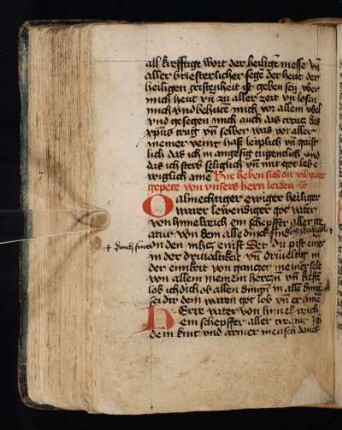 all krefftige wort der heiligen messe vn
aller briesterlicher segen der heut der
heiligen cristenheit ist geben sey vber
mich heut vn zu aller zeit vn losen
mich vnd behute mich vor allem vbel
vnd gesegen mich auch das creutz das
xpus trug vn selber was vor aller
meiner veint haß leiplich vn geist
lich das ich in angesig tugentlich vnd
das ich sterb seliglich vn mit got leb e
wiglich ame Hie heben sich an vil guter
gepete von vnsers hern leiden
O almechtiger ewiger heiliger
warer lewendiger got vater
von himelreich ein schepffer aller
atur von dem alle dinck sind
on den nihtz enist Der du pist einig
in der driualtikeit vn driueltig in
der einikeit von gantzer meiner sele
von allem meinem hertzen vn krefft
lob ich dich ob allen dingen in alle ding
sei dir dem waren got lob vn er ame
Herre vater von himelreich
ein schepffer aller creatur Ich
dein kint vnd armer mensch danck